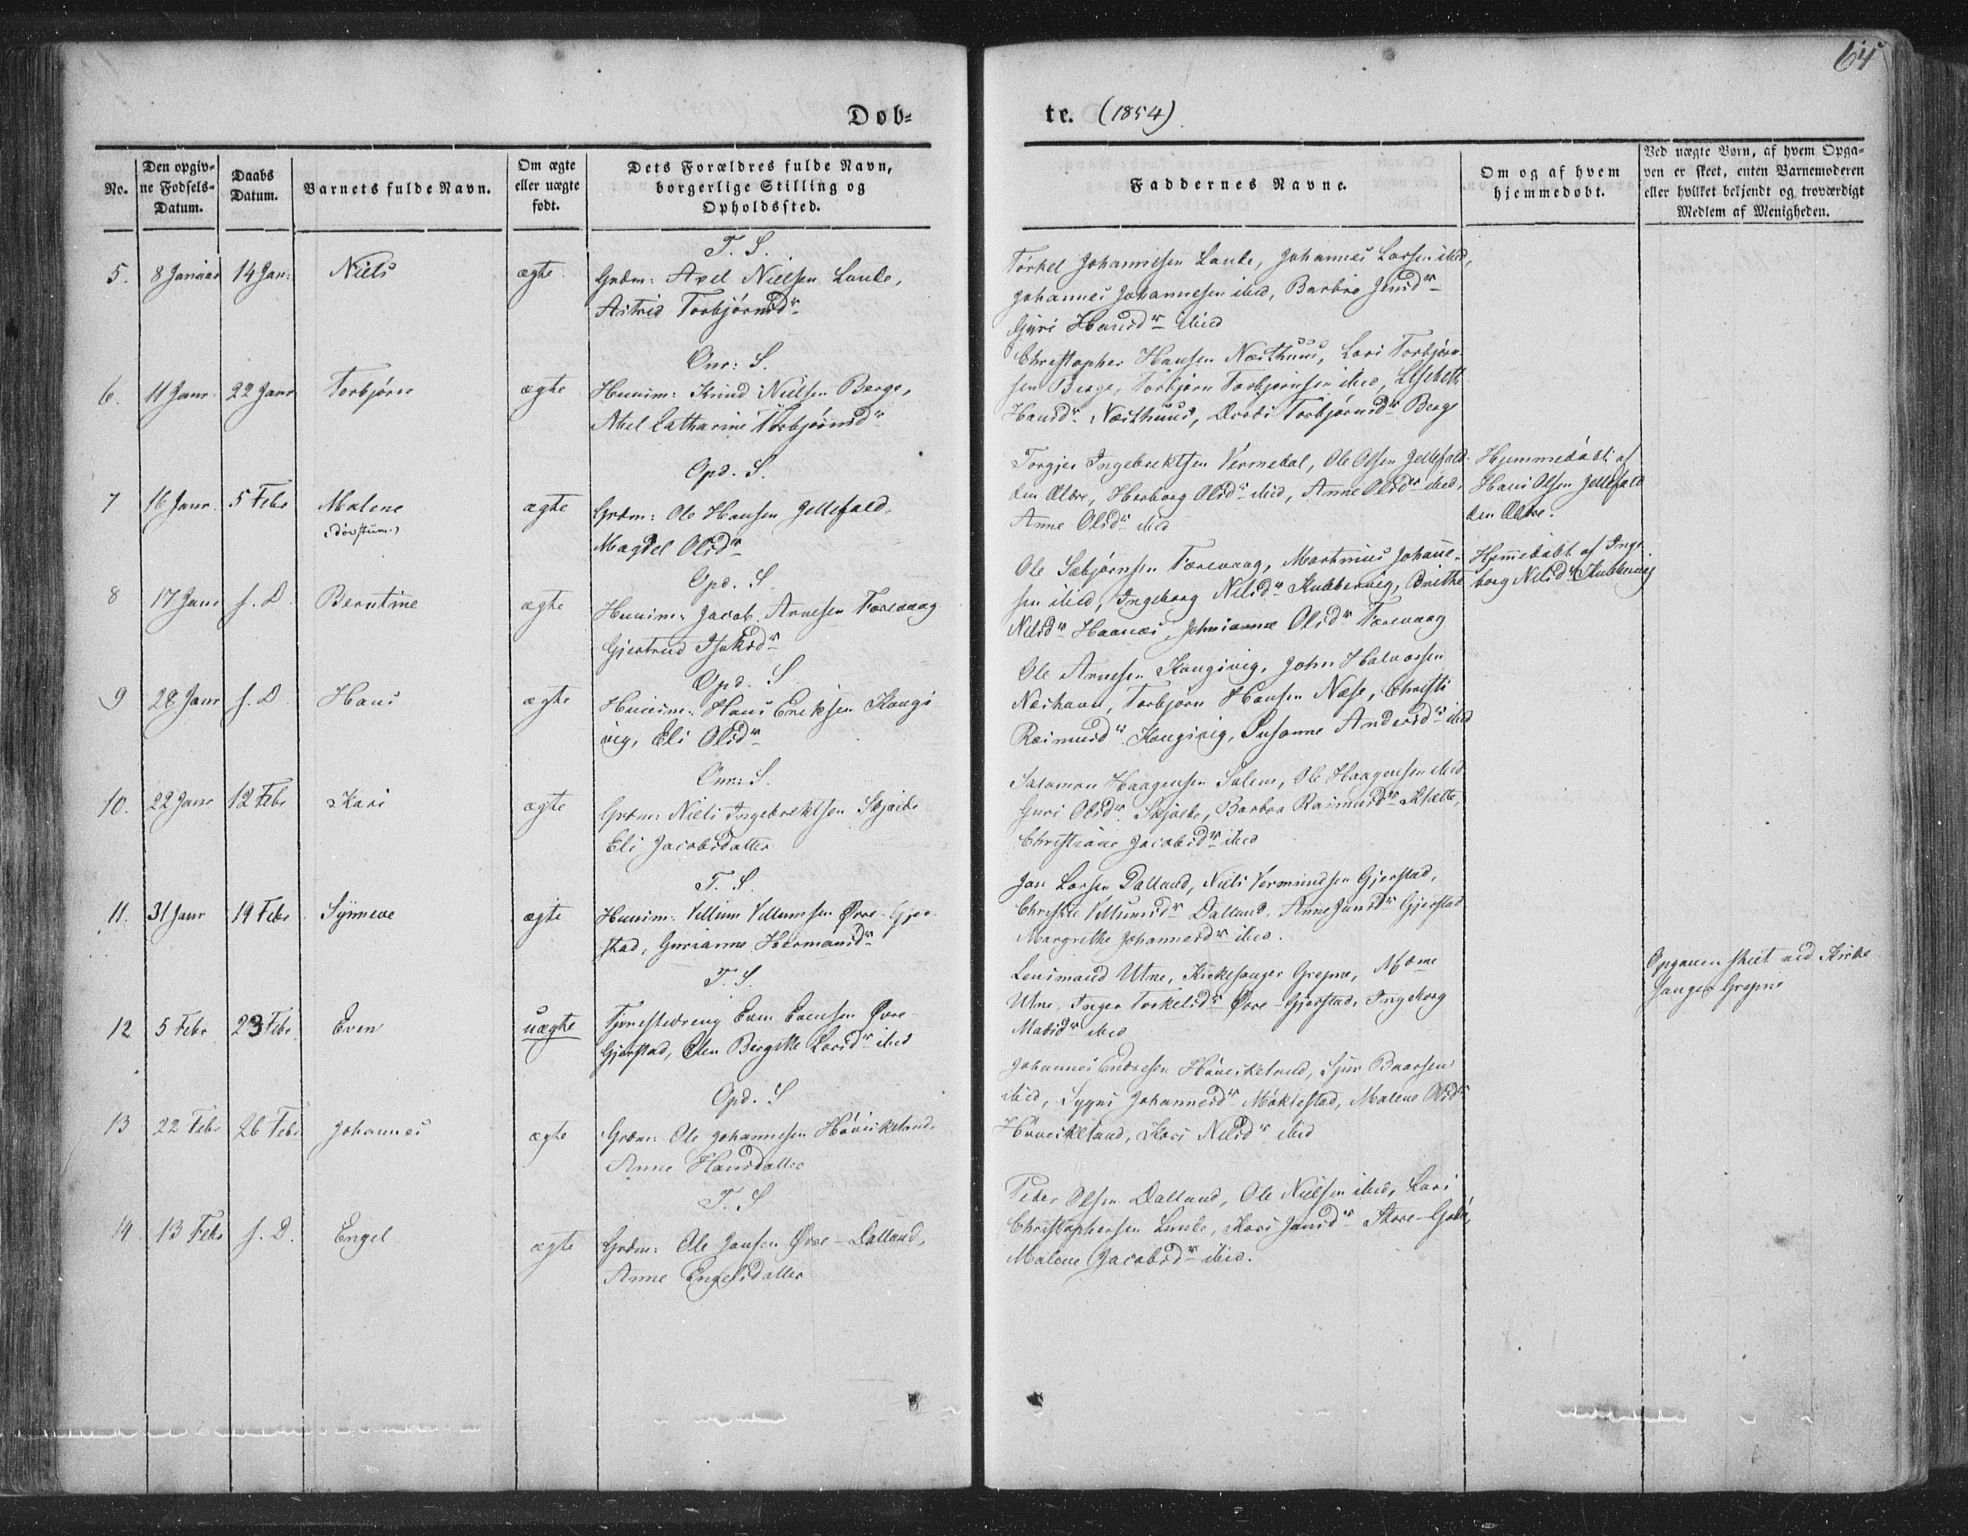 64
Døb-
te. (1854)
No.
Den opgiv-
ne Fødsels-
Datum.
Daabs
Datum.
Barnets fulde Navn.
Om ægte
eller uægte
født.
Dets Forældres fulde Navn,
borgerlige Stilling og
Opholdssted.
Faddernes Navne.
Om og af hvem
hjemmedøbt.
Ved uægte Børn, af hvem Opga-
ven er skeet, enten Barnemoderen
eller hvilket bekjendt og troværdigt
Medlem af Menigheden.
T. S.
5. 8 Januar 14 Jan: Niels ægte Grdm: Axel Nielsen Lunde,
Astrid Torbjørnsdr
Torkel Johannesen Lunde, Johannes Larsen ibid,
Johannes Johannesen ibid, Barbro Jensdr
Guri Hansdr ibid
Onr: S.
6. 11 Janr 22 Janr Torbjørn ægte Huusm: Knud Nielsen Berge,
Axel Cathrine Torbjørnsdr
Christopher Hansen Næsthuus, Lars Torbjørn-
sen Berge, Torbjørn Torbjørnsen ibid, Lisebeth
Hansdr Næsthuus, Torbjørnsdr Berge
Opd. S.
7 16 Janr 5 Febr Malene
(døvstum)
ægte Grdm: Ole Hansen Jellefald,
Magdel Olsdr
Torgjer Ingebrektsen Vermedal, Ole Olsen Jellefald
den Ældre, Herborg Olsdr ibid, Anne Olsdr ibid,
Anne Olsdr ibid
Hjemmedøbt af
Hans Olsen Jellefald
den Ældre.
Opd. S.
8 17 Janr s. D. Berntine ægte Huusm: Jacob Arnesen Tærevaag
Gjertrud Isaksdr
Ole Sebjørnsen Tærevaag, Martinus Johanne-
sen ibid, Ingeborg Nilsdr Kubbervig, Brithe
Nilsdr Haanæs, Johnianna Olsdr Tærevaag
Hjemmedøbt af Inge-
borg Nilsdr Kubbervig
Opd. S.
9 28 Janr s. D. Hans ægte Huusm: Hans Eriksen Kongs-
vig, Eli Olsdr
Ole Arnesen Kongsvig, John Halvorsen
Næshavn, Torbjørn Hansen Næse, Christi
Rasmusdr Kongsvig, Susanne Andersdr ibid
Onr: S.
10. 22 Janr 12 Febr Kari ægte Grdm: Niels Ingebrektsen Skjelde
Eli Jacobsdatter
Salamon Haagensen Salene, Ole Haagensen ibid
Guri Olsdr Skjelde, Barbra Rasmusdr
Christiane Jacobsdr ibid
T. S.
11. 31 Janr 19 Febr Synneve ægte Huusm: Villum Villumsen Øvre-Gjer-
stad, Gurianne Hermansdr
Jan Larsen Dalland, Niels Vermundsen Gjerstad,
Christi Villumsdr Dalland, Anne Jansdr Gjerstad
Margrethe Johannesdr ibid.
T. S.
12 5 Febr 23 Febr Even uægte Tjenestedreng Even Evensen Øvre-
Gjerstad, Elen Bergitte Larsdr ibid
Lensmand Utne, Kirkesanger Grepne, Mdme
Utne, Inger Torkelsdr Øvre-Gjerstad, Ingeborg
Madsdr ibid
Opgaven skeet ved Kirke-
sanger Grepne
Opd. S
13 22 Febr 26 Febr Johannes ægte Grdm: Ole Johannesen Høviskeland
Anne Hansdatter
Johannes Endresen Høviskeland, Sjur Baarsen
ibid, Sygni Johannesdr Møklestad, Malene Olsdr
Høviskeland, Kari Nilsdr ibid
T. S
14 13 Febr s. D. Engel ægte Grdm: Ole Jansen Øvre-Dalland,
Anne Engelsdatter
Peder Olsen Dalland, Ole Nielsen ibid, Lars
Christophersen Lunde, Kari Jansdr Store-
Malene Jacobsdr ibid.